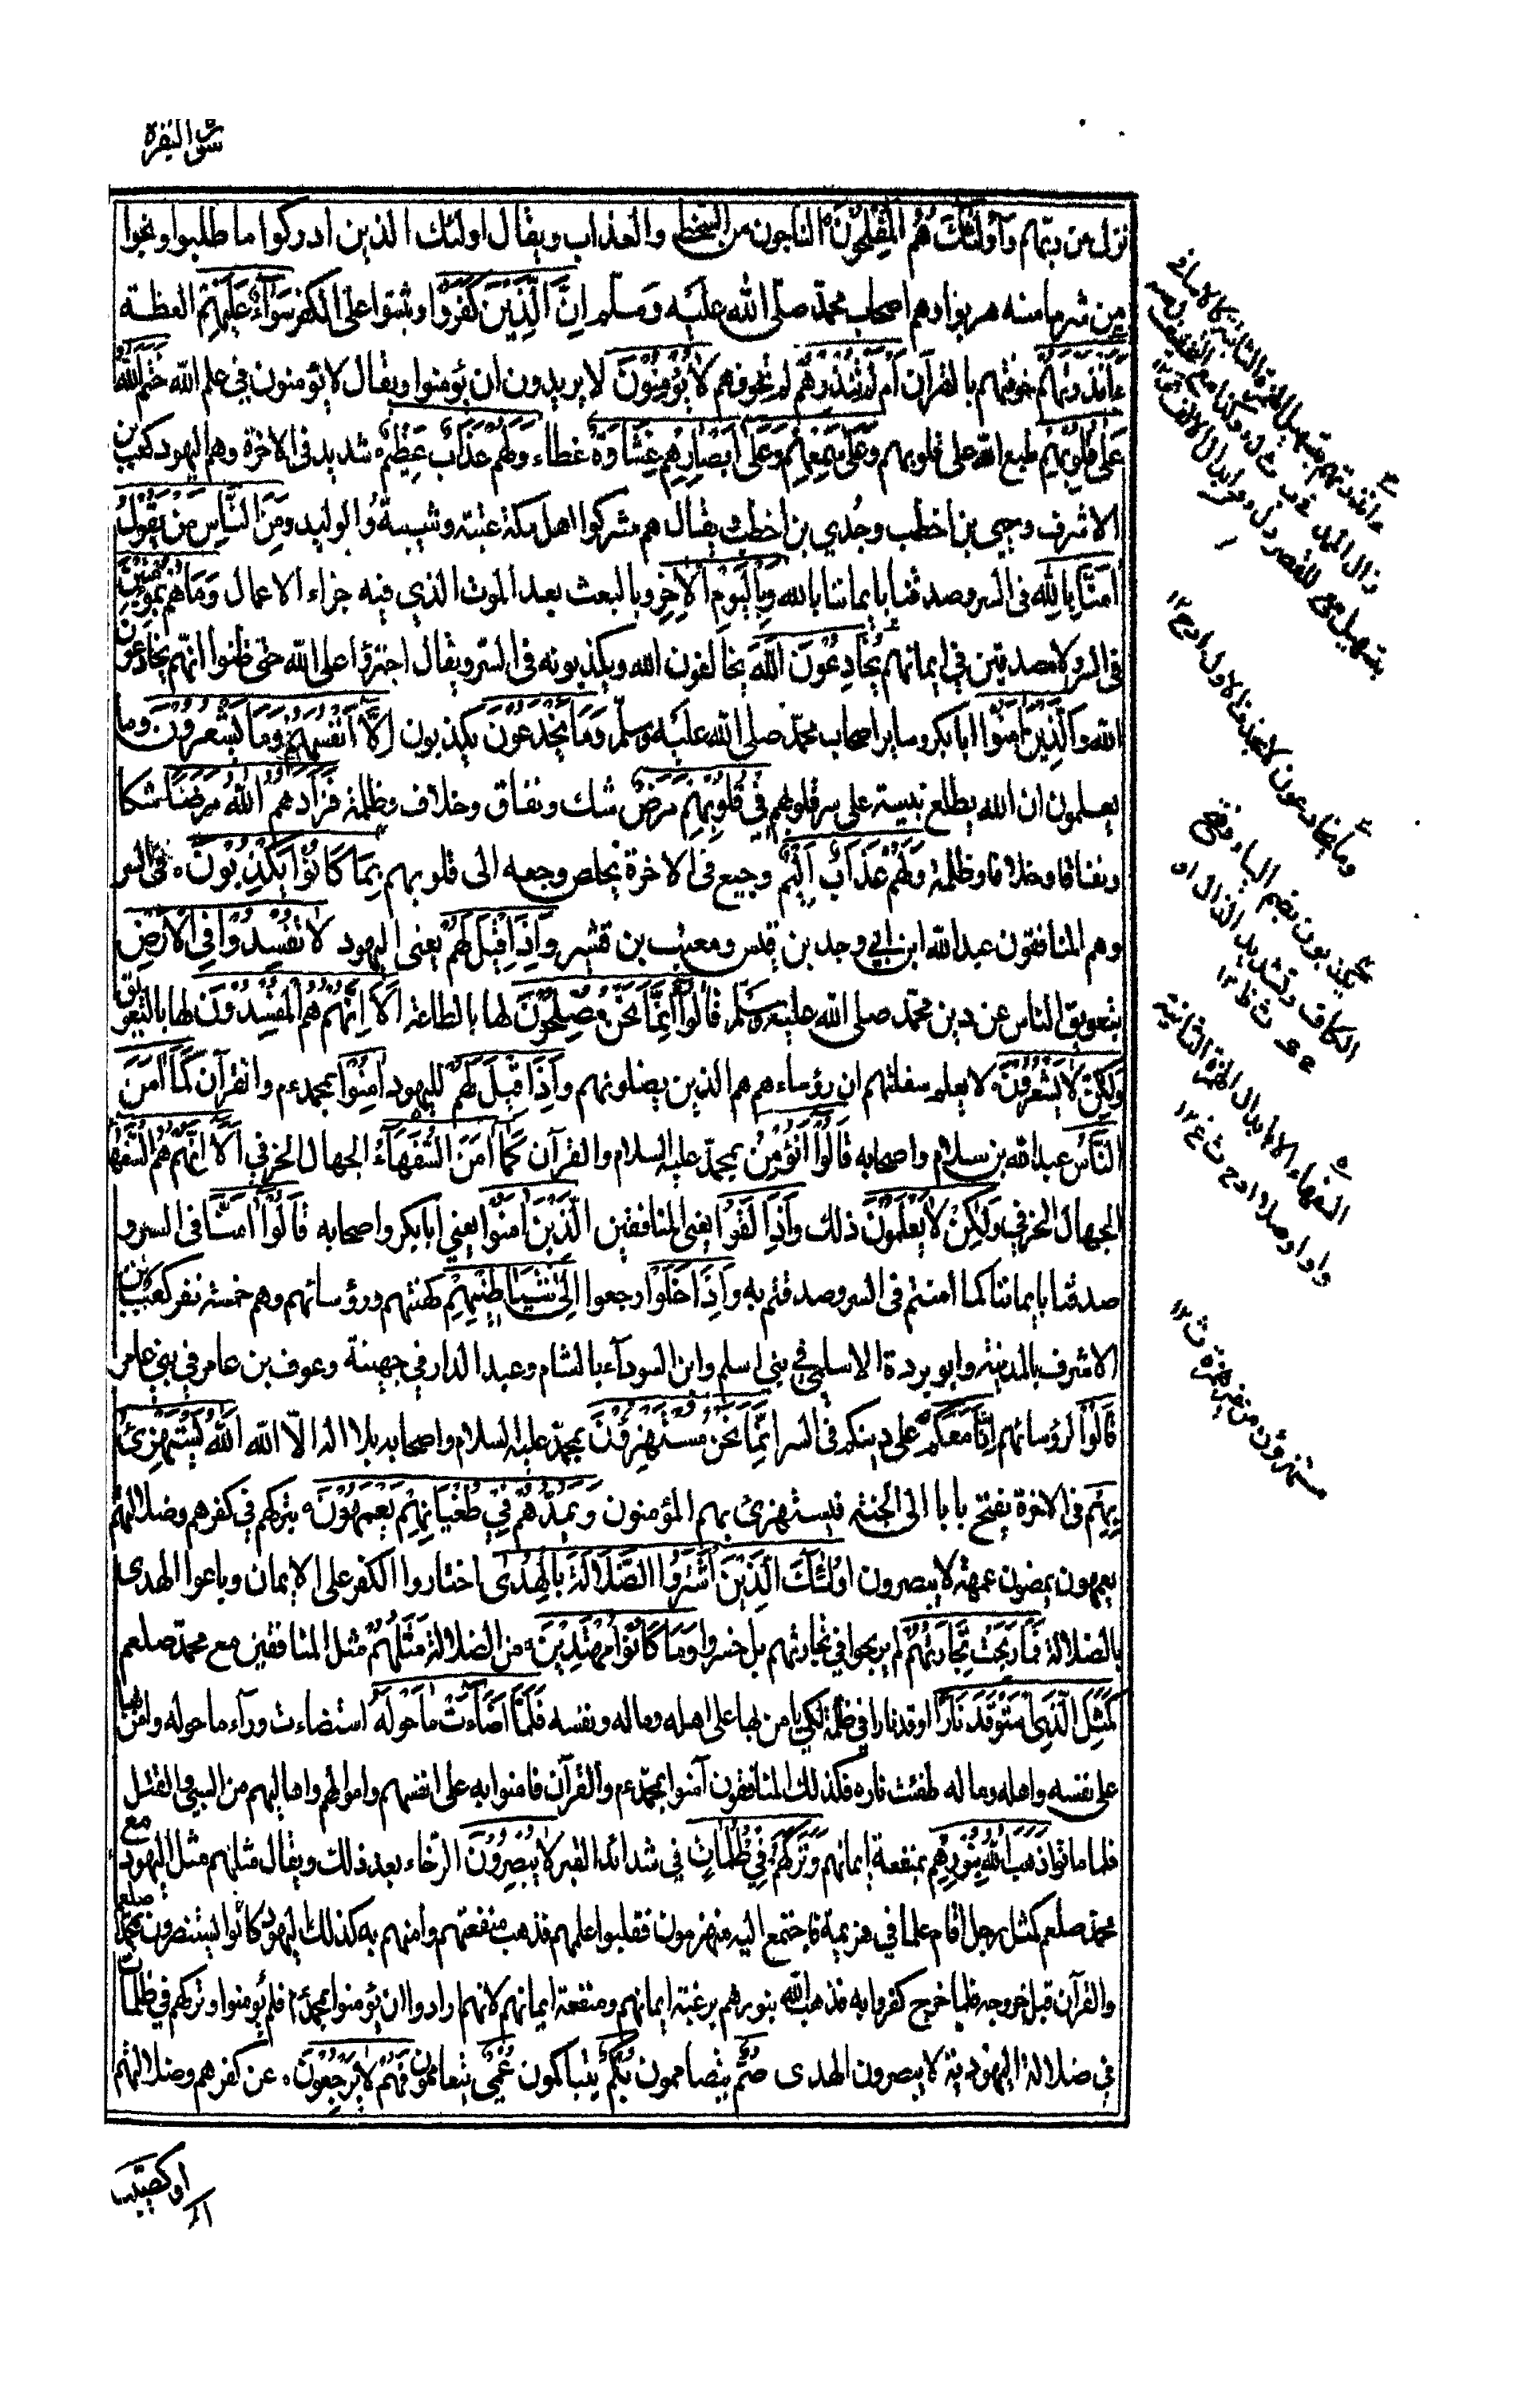 سورة البقرة
نزل من ربهم وَأُولَٰئِكَ هُمُ الْمُفْلِحُونَ الناجون من السخط والعذاب ويقال اولئك الذين ادركوا ما طلبوا ونجوا
من شر ما منه هربوا وهم اصحاب محمد صلى الله عليه وسلم إِنَّ الَّذِينَ كَفَرُوا وثبتوا على الكفر سَوَاءٌ عَلَيْهِمْ العظة
ءَأَنْذَرْتَهُمْ خوفتهم بالقرآن أَمْ لَمْ تُنْذِرْهُمْ لم تخوفهم لَا يُؤْمِنُونَ لا يريدون ان يؤمنوا ويقال لا يؤمنون في علم الله خَتَمَ اللَّهُ
عَلَىٰ قُلُوبِهِمْ طبع الله على قلوبهم وَعَلَىٰ سَمْعِهِمْ وَعَلَىٰ أَبْصَارِهِمْ غِشَاوَةٌ غطاء وَلَهُمْ عَذَابٌ عَظِيمٌ شديد في الاخرة وهم اليهود كعب بن
الاشرف وحيي بن اخطب وجدي بن اخطب ويقال هم مشركوا اهل مكة عتبة وشيبة والوليد وَمِنَ النَّاسِ مَنْ يَقُولُ
آمَنَّا بِاللَّهِ في السر وصدقنا بايماننا بالله وَبِالْيَوْمِ الْآخِرِ وبالبعث بعد الموت الذي فيه جزاء الاعمال وَمَا هُمْ بِمُؤْمِنِينَ
في السر ولا مصدقين في ايمانهم يُخَادِعُونَ اللَّهَ يخالفون الله ويكذبونه في السر ويقال اجترؤا على الله حتى ظنوا انهم يخادعون
الله وَالَّذِينَ آمَنُوا ابا بكر وساير اصحاب محمد صلى الله عليه وسلم وَمَا يَخْدَعُونَ يكذبون إِلَّا أَنْفُسَهُمْ وَمَا يَشْعُرُونَ وما
يعلمون ان الله يطلع نبيه على سر قلوبهم فِي قُلُوبِهِمْ مَرَضٌ شك ونفاق وخلاف وظلمة فَزَادَهُمُ اللَّهُ مَرَضًا شكا
ونفاقا وخلافا وظلمة وَلَهُمْ عَذَابٌ أَلِيمٌ وجيع في الاخرة يخلص وجعه الى قلوبهم بِمَا كَانُوا يَكْذِبُونَ في السر
وهم المنافقون عبد الله ابن ابي وجد بن قيس ومعتب بن قشير وَإِذَا قِيلَ لَهُمْ يعنى اليهود لَا تُفْسِدُوا فِي الْأَرْضِ
بتعويق الناس عن دين محمد صلى الله عليه وسلم قَالُوا إِنَّمَا نَحْنُ مُصْلِحُونَ لها بالطاعة أَلَا إِنَّهُمْ هُمُ الْمُفْسِدُونَ لها بالتعويق
وَلَٰكِنْ لَا يَشْعُرُونَ لا يعلم سفلتهم ان رؤساءهم هم الذين يضلونهم وَإِذَا قِيلَ لَهُمْ لليهود آمِنُوا بمحمد عم والقرآن كَمَا آمَنَ
النَّاسُ عبد الله بن سلام واصحابه قَالُوا أَنُؤْمِنُ بمحمد عليه السلام والقرآن كَمَا آمَنَ السُّفَهَاءُ الجهال الخرقي أَلَا إِنَّهُمْ هُمُ السُّفَهَاءُ
الجهال الخرقي وَلَٰكِنْ لَا يَعْلَمُونَ ذلك وَإِذَا لَقُوا يعنى المنافقين الَّذِينَ آمَنُوا يعني ابا بكر واصحابه قَالُوا آمَنَّا في السر و
صدقنا بايماننا كما امنتم في السر وصدقتم به وَإِذَا خَلَوْا رجعوا إِلَىٰ شَيَاطِينِهِمْ كهنتهم ورؤسائهم وهم خمسة نفر كعب بن
الاشرف بالمدينة وابو بردة الاسلمي في بني اسلم وابن السوداء بالشام وعبد الدار في جهينة وعوف بن عامر في بني عامر
قَالُوا لرؤسائهم إِنَّا مَعَكُمْ على دينكم في السر إِنَّمَا نَحْنُ مُسْتَهْزِئُونَ بمحمد عليه السلام واصحابه بلا اله الا الله اللَّهُ يَسْتَهْزِئُ
بِهِمْ في الاخرة يفتح بابا الى الجنة فيستهزئ بهم المؤمنون وَيَمُدُّهُمْ فِي طُغْيَانِهِمْ يَعْمَهُونَ يتركهم في كفرهم وضلالتهم
يعمهون يمضون عمهة لا يبصرون أُولَٰئِكَ الَّذِينَ اشْتَرَوُا الضَّلَالَةَ بِالْهُدَىٰ اختاروا الكفر على الايمان وباعوا الهدى
بالضلالة فَمَا رَبِحَتْ تِجَارَتُهُمْ لم يربحوا في تجارتهم بل خسروا وَمَا كَانُوا مُهْتَدِينَ من الضلالة مَثَلُهُمْ مثل المنافقين مع محمد صلعم
كَمَثَلِ الَّذِي اسْتَوْقَدَ نَارًا اوقد نارا في ظلمة لكي يامن بها على اهله وماله ونفسه فَلَمَّا أَضَاءَتْ مَا حَوْلَهُ استضاءت ورآء ما حوله وامن بها
على نفسه واهله وماله طفئت ناره فكذلك المنافقون آمنوا بمحمد عم والقرآن فامنوا به على انفسهم واموالهم واهاليهم من السبي والقتل
فلما ماتوا ذَهَبَ اللَّهُ بِنُورِهِمْ بمنفعة ايمانهم وَتَرَكَهُمْ فِي ظُلُمَاتٍ في شدائد القبر لَا يُبْصِرُونَ الرخاء بعد ذلك ويقال مثلهم مثل اليهود مع
محمد صلعم كمثل رجل اقام علما في هزيمة فاجتمع اليه منهزمون فقلبوا علمهم فذهب منفعتهم وامنهم به كذلك اليهود كانوا يستنصرون بمحمد صلعم
والقرآن قبل خروجه فلما خرج كفروا به فذهب الله بنورهم برغبة ايمانهم ومنفعة ايمانهم لانهم ارادوا ان يؤمنوا بمحمد عم فلم يؤمنوا وتركهم في ظلمات
في ضلالة اليهودية لا يبصرون الهدى صُمٌّ يتصاممون بُكْمٌ يتباكمون عُمْيٌ يتعامون فَهُمْ لَا يَرْجِعُونَ عن كفرهم وضلالتهم
أو كصيب
وما يخادعون
يكذبون بضم الياء وفتح
الكاف وتشديد الذال
السفهاء الا بابدال الهمزة الثانية
واوا وصلا